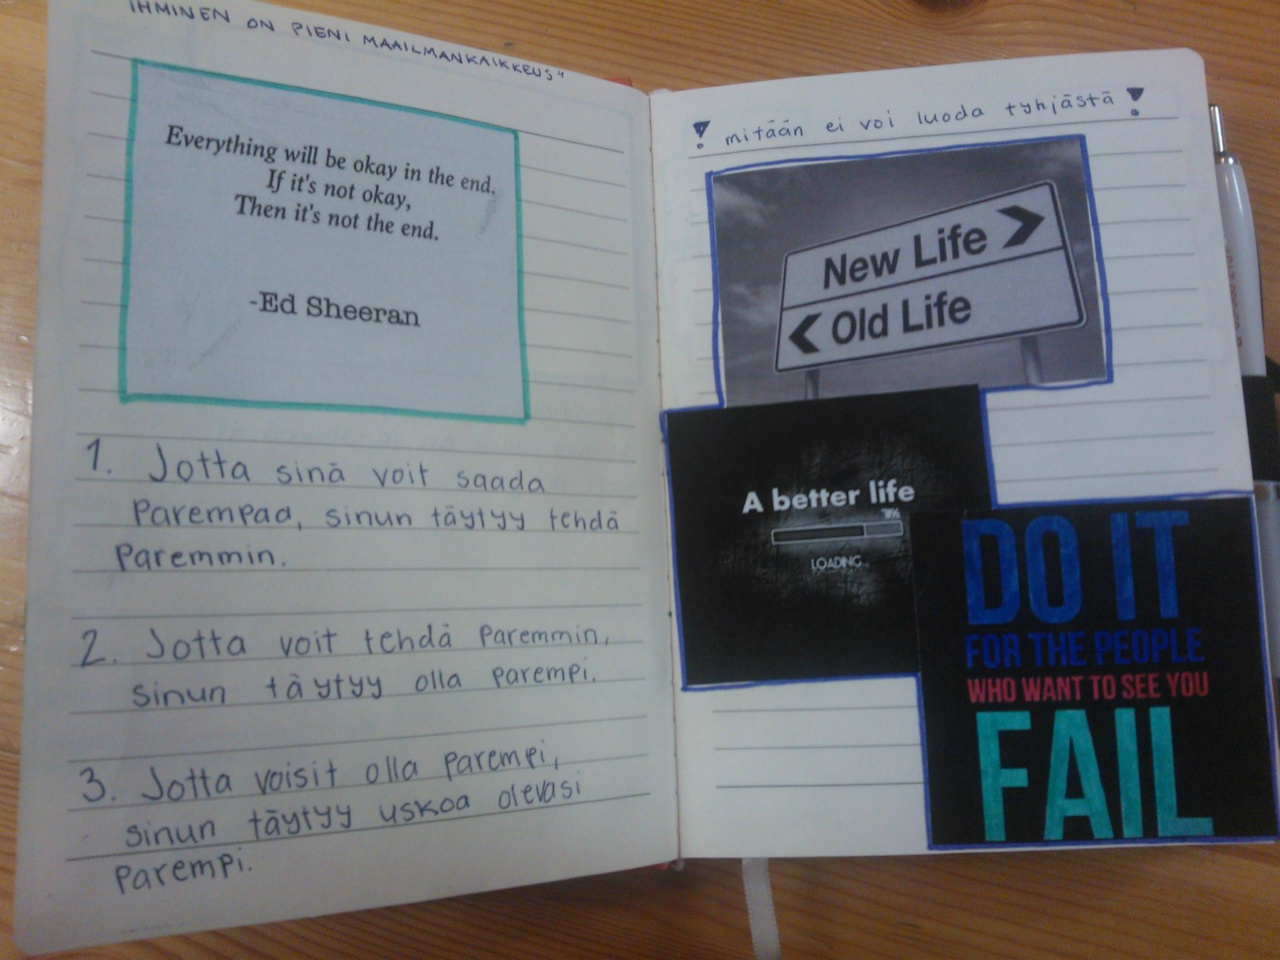 IHMINEN ON PIENI MAAILMANKAIKKEUS"
Everything will be okay in the end.
If it's not okay,
Then it's not the end.
-Ed Sheeran
1. Jotta sinä voit saada
parempaa, sinun täytyy tehdä
paremmin.
2. Jotta voit tehdä paremmin,
sinun täytyy olla parempi.
3. Jotta voisit olla parempi,
sinun täytyy uskoa olevasi
parempi.
! mitään ei voi luoda tyhjästä !
New Life
Old Life
A better life
LOADING...
DO IT
FOR THE PEOPLE
WHO WANT TO SEE YOU
FAIL